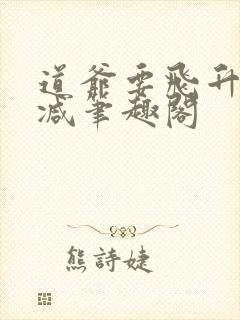 道爺要飛升
減筆趣閣
熊詩婕